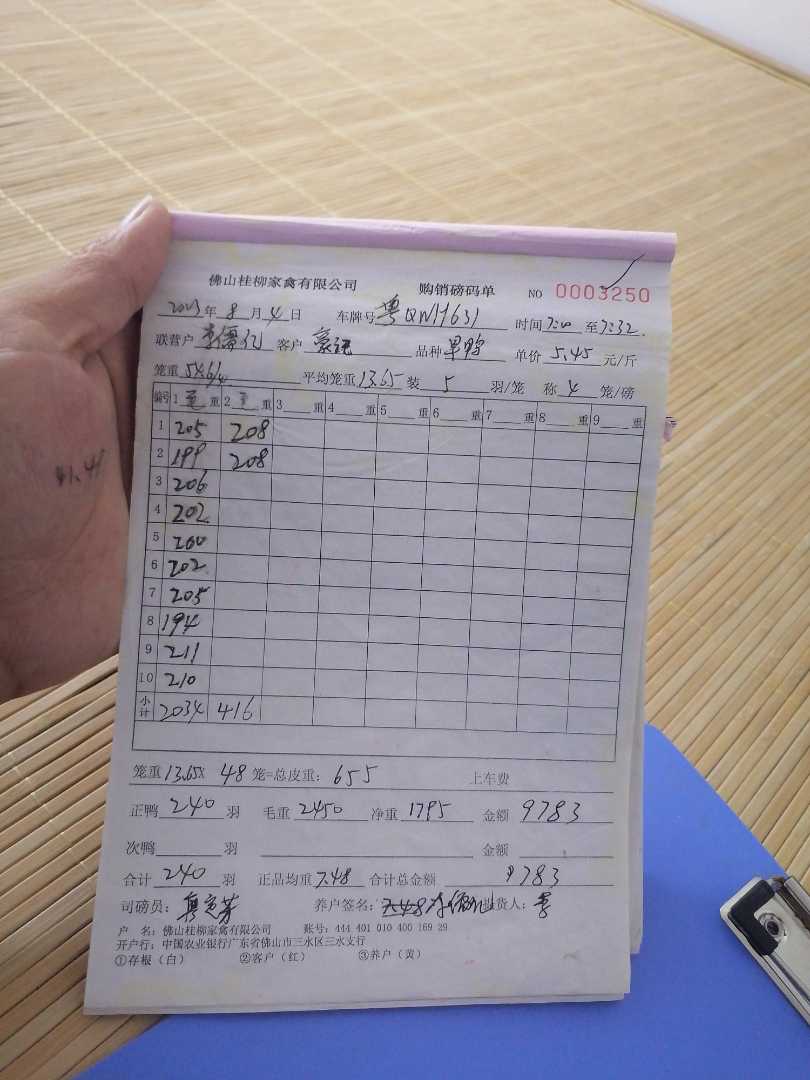 佛山桂柳家禽有限公司 购销磅码单 NO 0003250
2023年8月4日 车牌号粤QN11631 时间7:00至7:32
联营户 客户豪记 品种 单价5.45元/斤
笼重 平均笼重13.65装5羽/笼 称4笼/磅
编号 1 重 2 重 3 重 4 重 5 重 6 重 7 重 8 重 9 重
1 205 208
2 199 208
3 206
4 202
5 200
6 202
7 205
8 194
9 211
10 210
小计 2034 416
笼重13.65×48笼=总皮重:655 上车费
正鸭240羽 毛重2450 净重1795 金额9783
次鸭 羽 金额
合计240羽 正品均重7.48 合计总金额9783
司磅员: 养户签名: 提货人:
户 名:佛山桂柳家禽有限公司 账号:444 401 010 400 169 29
开户行:中国农业银行广东省佛山市三水区三水支行
①存根(白) ②客户(红) ③养户(黄)